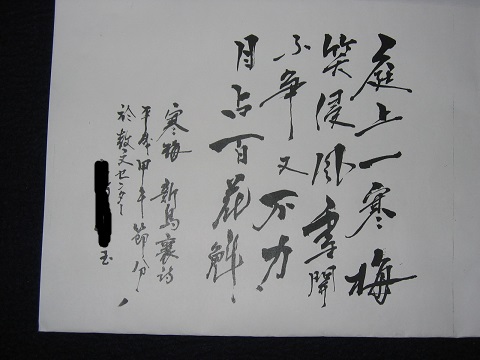 庭上一寒梅
笑侵風雪開
不争又不力
自占百花魁
寒梅 新島襄詩
平成甲午節分
於教文センター
玉